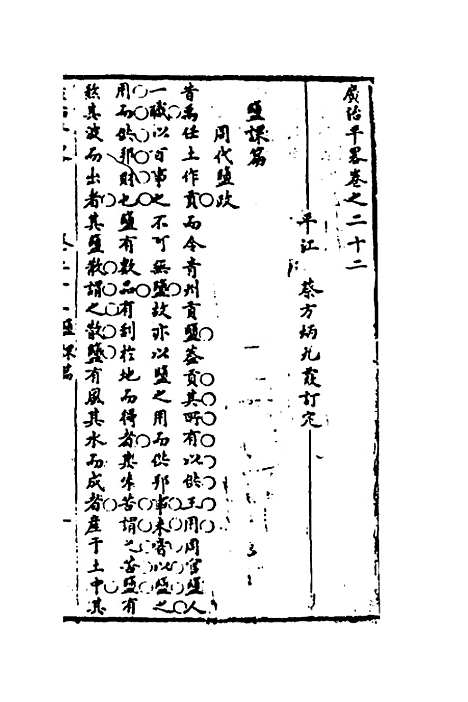 廣治平畧卷之二十二
平江 蔡方炳九霞訂定
鹽課篇
周代鹽政
昔禹任土作貢而令青州貢鹽蓋貢其所有以供王用周官鹽人
一職以百事之不可無鹽故亦以鹽之用而供邦事未嘗以鹽之
用而供邦財也鹽有數品有刋於地而得者其味苦謂之苦鹽有
熬其波而出者其鹽散謂之散鹽有風其水而成者產于土中其
鹽課篇